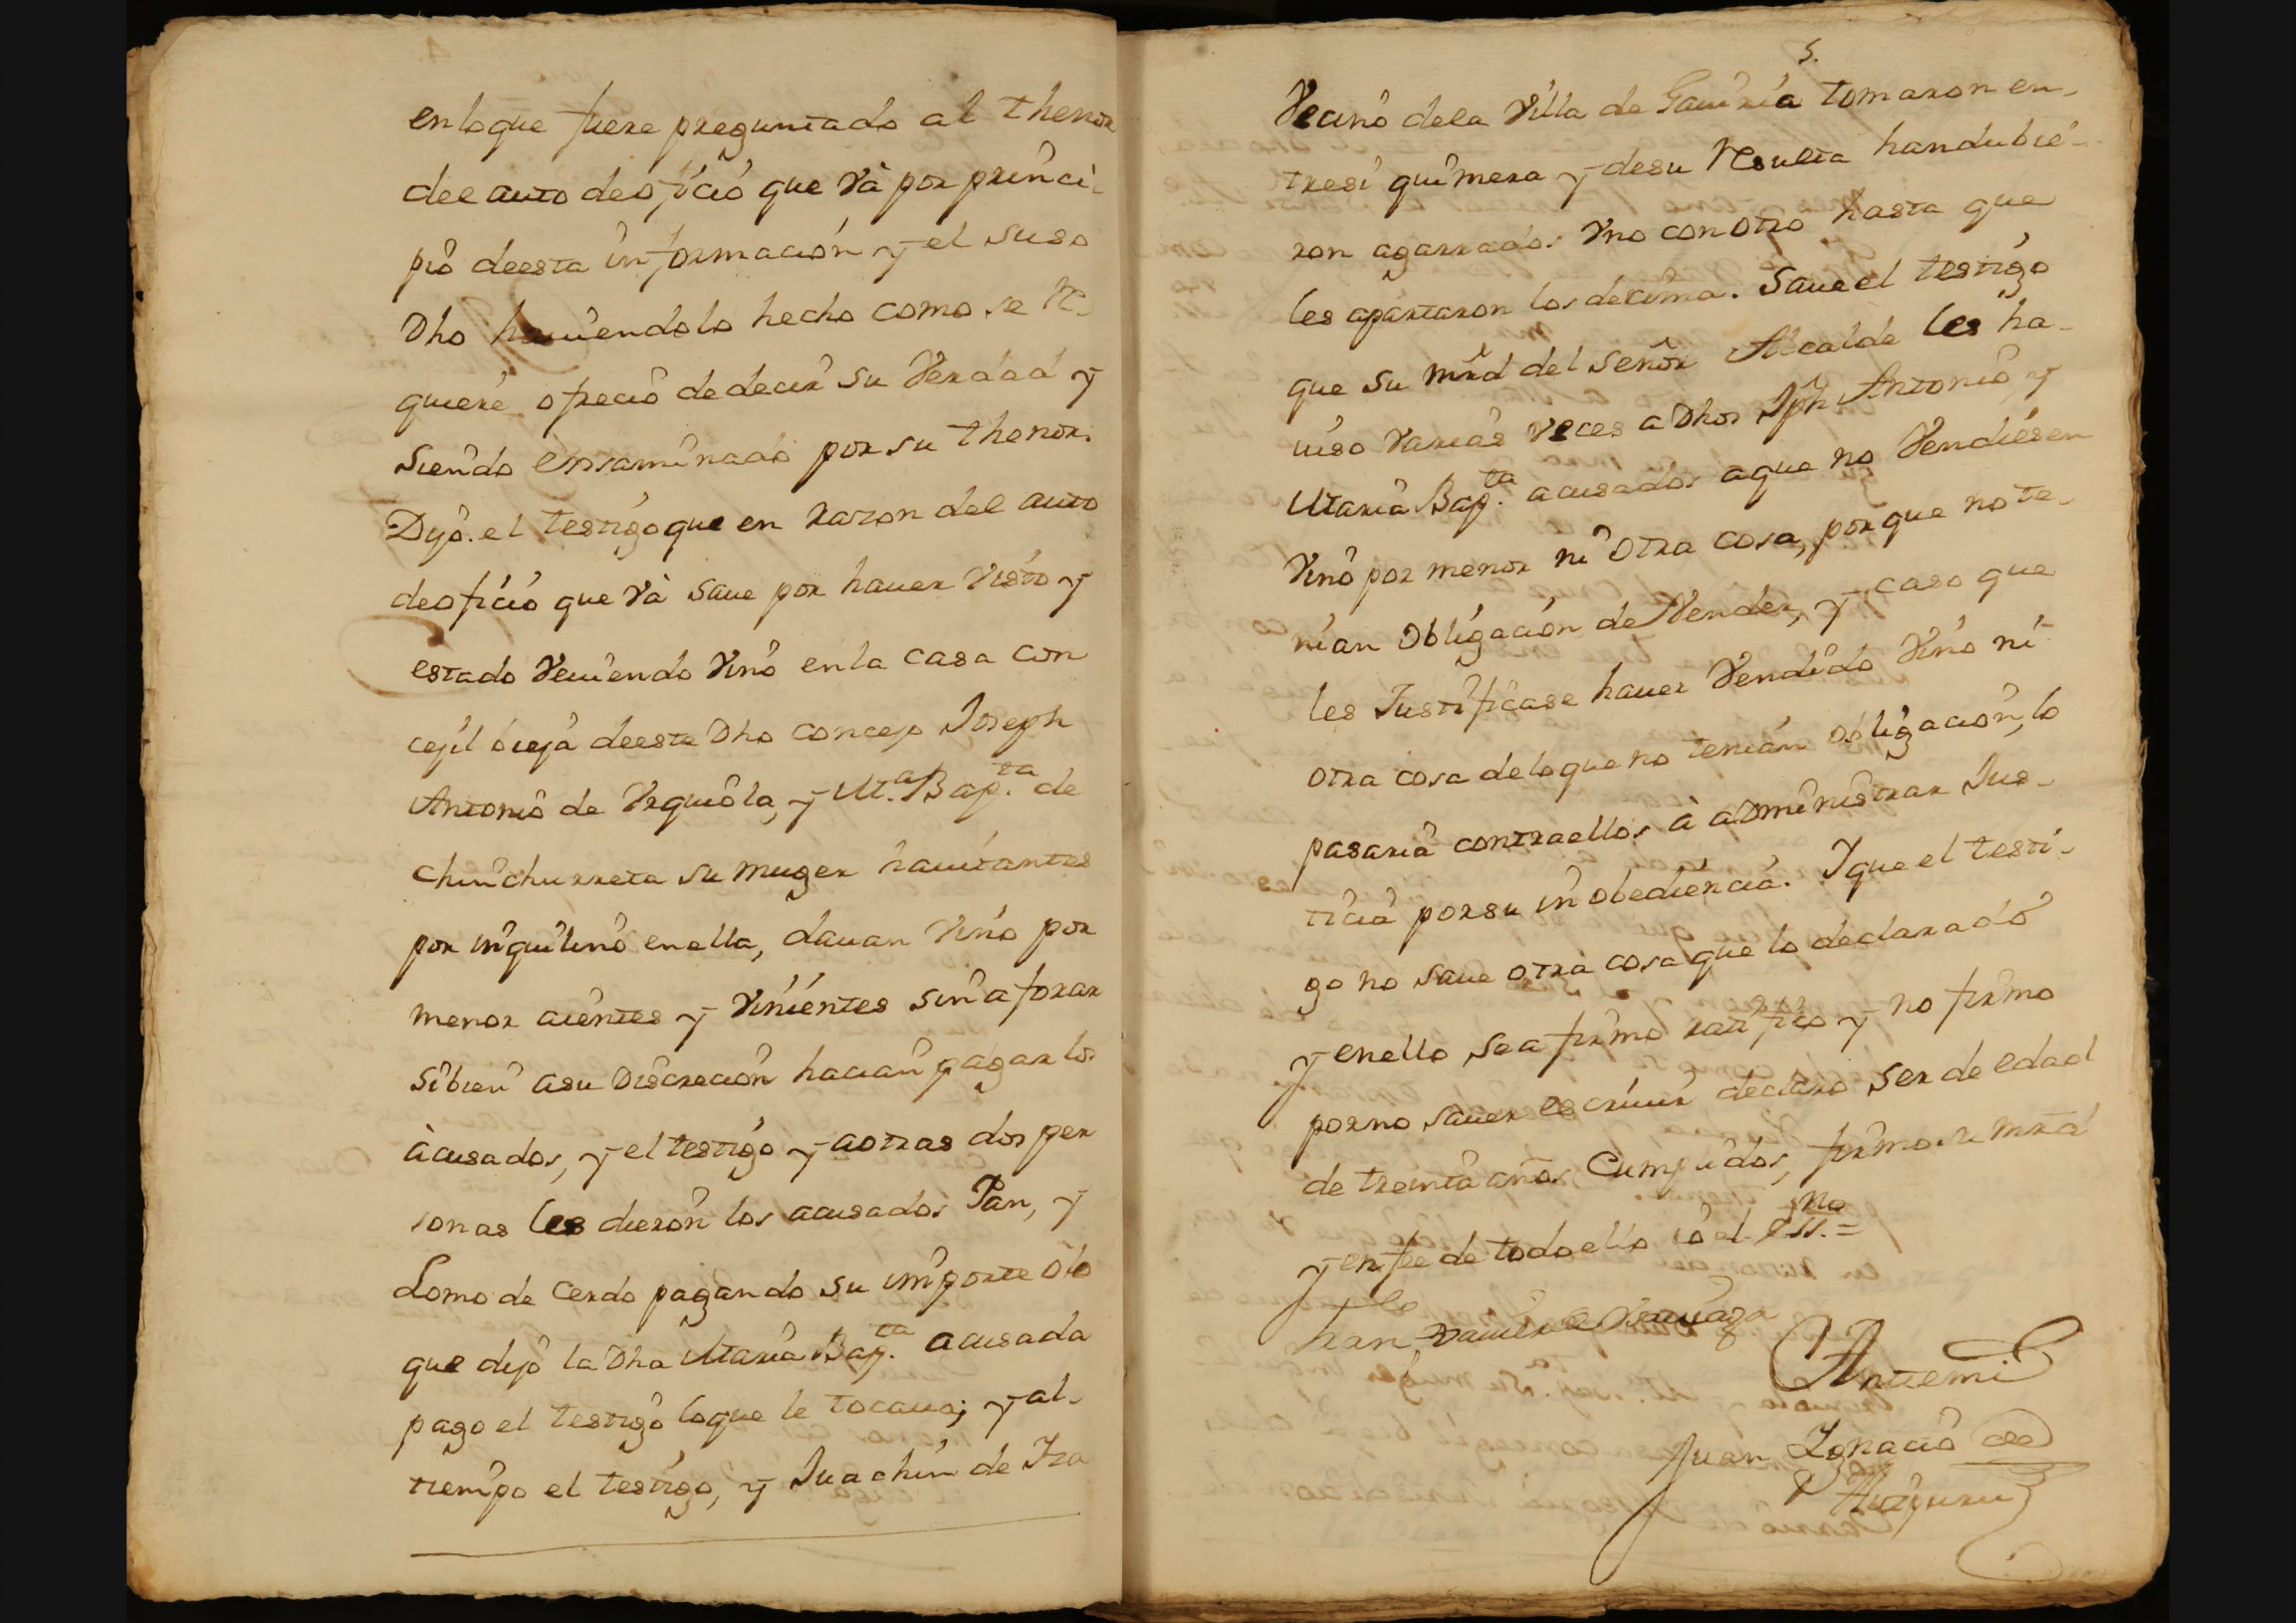 en loque fuere preguntado al thenor
del auto de oficio que và por princi-
pio de esta informacion y el suso
Dho haviendolo hecho como se re-
quiere ofrecio de decir su Verdad y
Siendo ensaminado por su thenor.
Dijo. el testigo que en razon del auto
de oficio que và save por haver visto y
estado Veviendo Vino en la casa con
cejil vieja de este Dho concejo Joseph
Antonio de Urquiola, y M.a Bap.ta de
Chinchurreta su muger havitantes
por inquilino en ella, davan Vino por
menor aientes y Vinientes sin aforar
si bien asu Discrecion hacian pagar los
àcusados, y el testigo y aotras dos per
sonas les dieron los acusados Pan, y
Lomo de Cerdo pagando su importe ôlo
que dijo la Dha Maria Bap.ta acusada
pago el testigo loque le tocava; y al-
tiempo el testigo, y Juachin de Iza
5.
Vecino dela Villa de Gaviria tomaron en-
tresi quimera y desu Resulta handubie-
ron agarrados Uno con otro hasta que
les apartaron los de encima. Save el testigo
que su mrd del señor Alcalde les ha-
viso varias veces a Dhos Jph Antonio y
Maria Bap.ta acusados aque no Vendiesen
Vino por menor ni otra cosa, porque no te-
nian obligacion de Vender, y caso que
les Justificase haver Vendido Vino ni
otra cosa deloque no tenian obligacion, lo
pasaria contra ellos à administrar Jus-
ticia por su inobediencia. Y que el testi-
go no save otra cosa que lo declarado
y enello se afirmo ratifico y no firmo
por no saver escrivir declaro ser de edad
de treinta años Cumplidos, firmo su mrd
y enfee de todo ello io el ess.no =
Fran.co Xavier de
Antemi
Juan Ignacio de